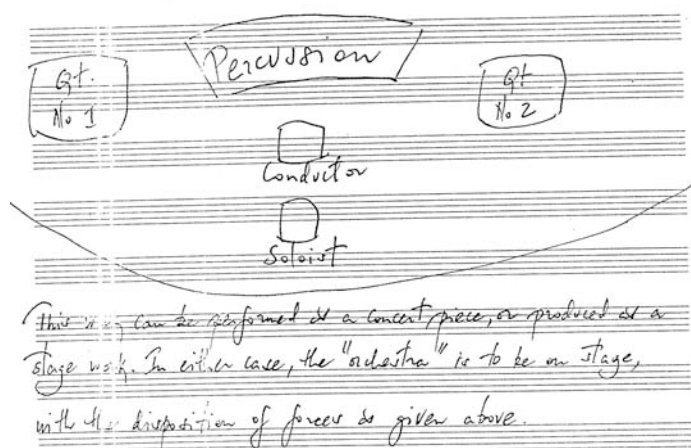 Percussion
Qt.
No 1
Qt
No 2
Conductor
Soloist
This can be performed as a concert piece, or produced as a
stage work. In either case, the "orchestra" is to be on stage,
with the disposition of forces as given above.